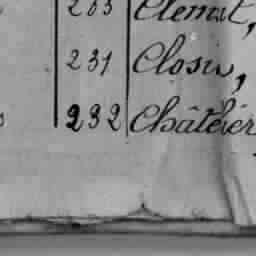 203 Clemat,
231 Closir,
232 Châtelér